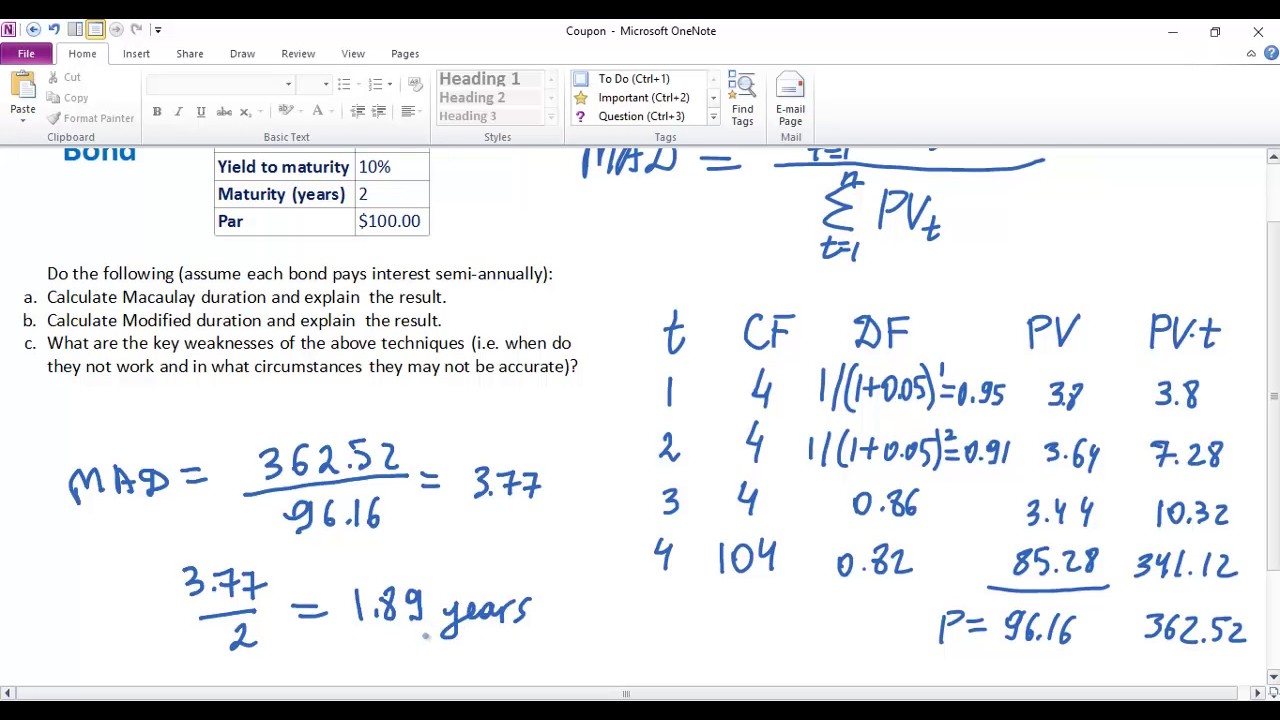 Coupon - Microsoft OneNote
File Home Insert Share Draw Review View Pages
Paste
Cut
Copy
Format Painter
Clipboard
B I U abc x₂ ab A
Basic Text
Heading 1
Heading 2
Heading 3
Styles
To Do (Ctrl+1)
Important (Ctrl+2)
Question (Ctrl+3)
Tags
Find Tags
E-mail Page
Mail
Bond
Yield to maturity 10%
Maturity (years) 2
Par $100.00
MAD =
t=1
n
Σ PVt
t=1
Do the following (assume each bond pays interest semi-annually):
a. Calculate Macaulay duration and explain the result.
b. Calculate Modified duration and explain the result.
c. What are the key weaknesses of the above techniques (i.e. when do
they not work and in what circumstances they may not be accurate)?
t CF DF PV PV·t
1 4 1/(1+0.05)¹=0.95 3.8 3.8
2 4 1/(1+0.05)²=0.91 3.64 7.28
3 4 0.86 3.44 10.32
4 104 0.82 85.28 341.12
P= 96.16 362.52
MAD = 362.52 / 96.16 = 3.77
3.77 / 2 = 1.89 years